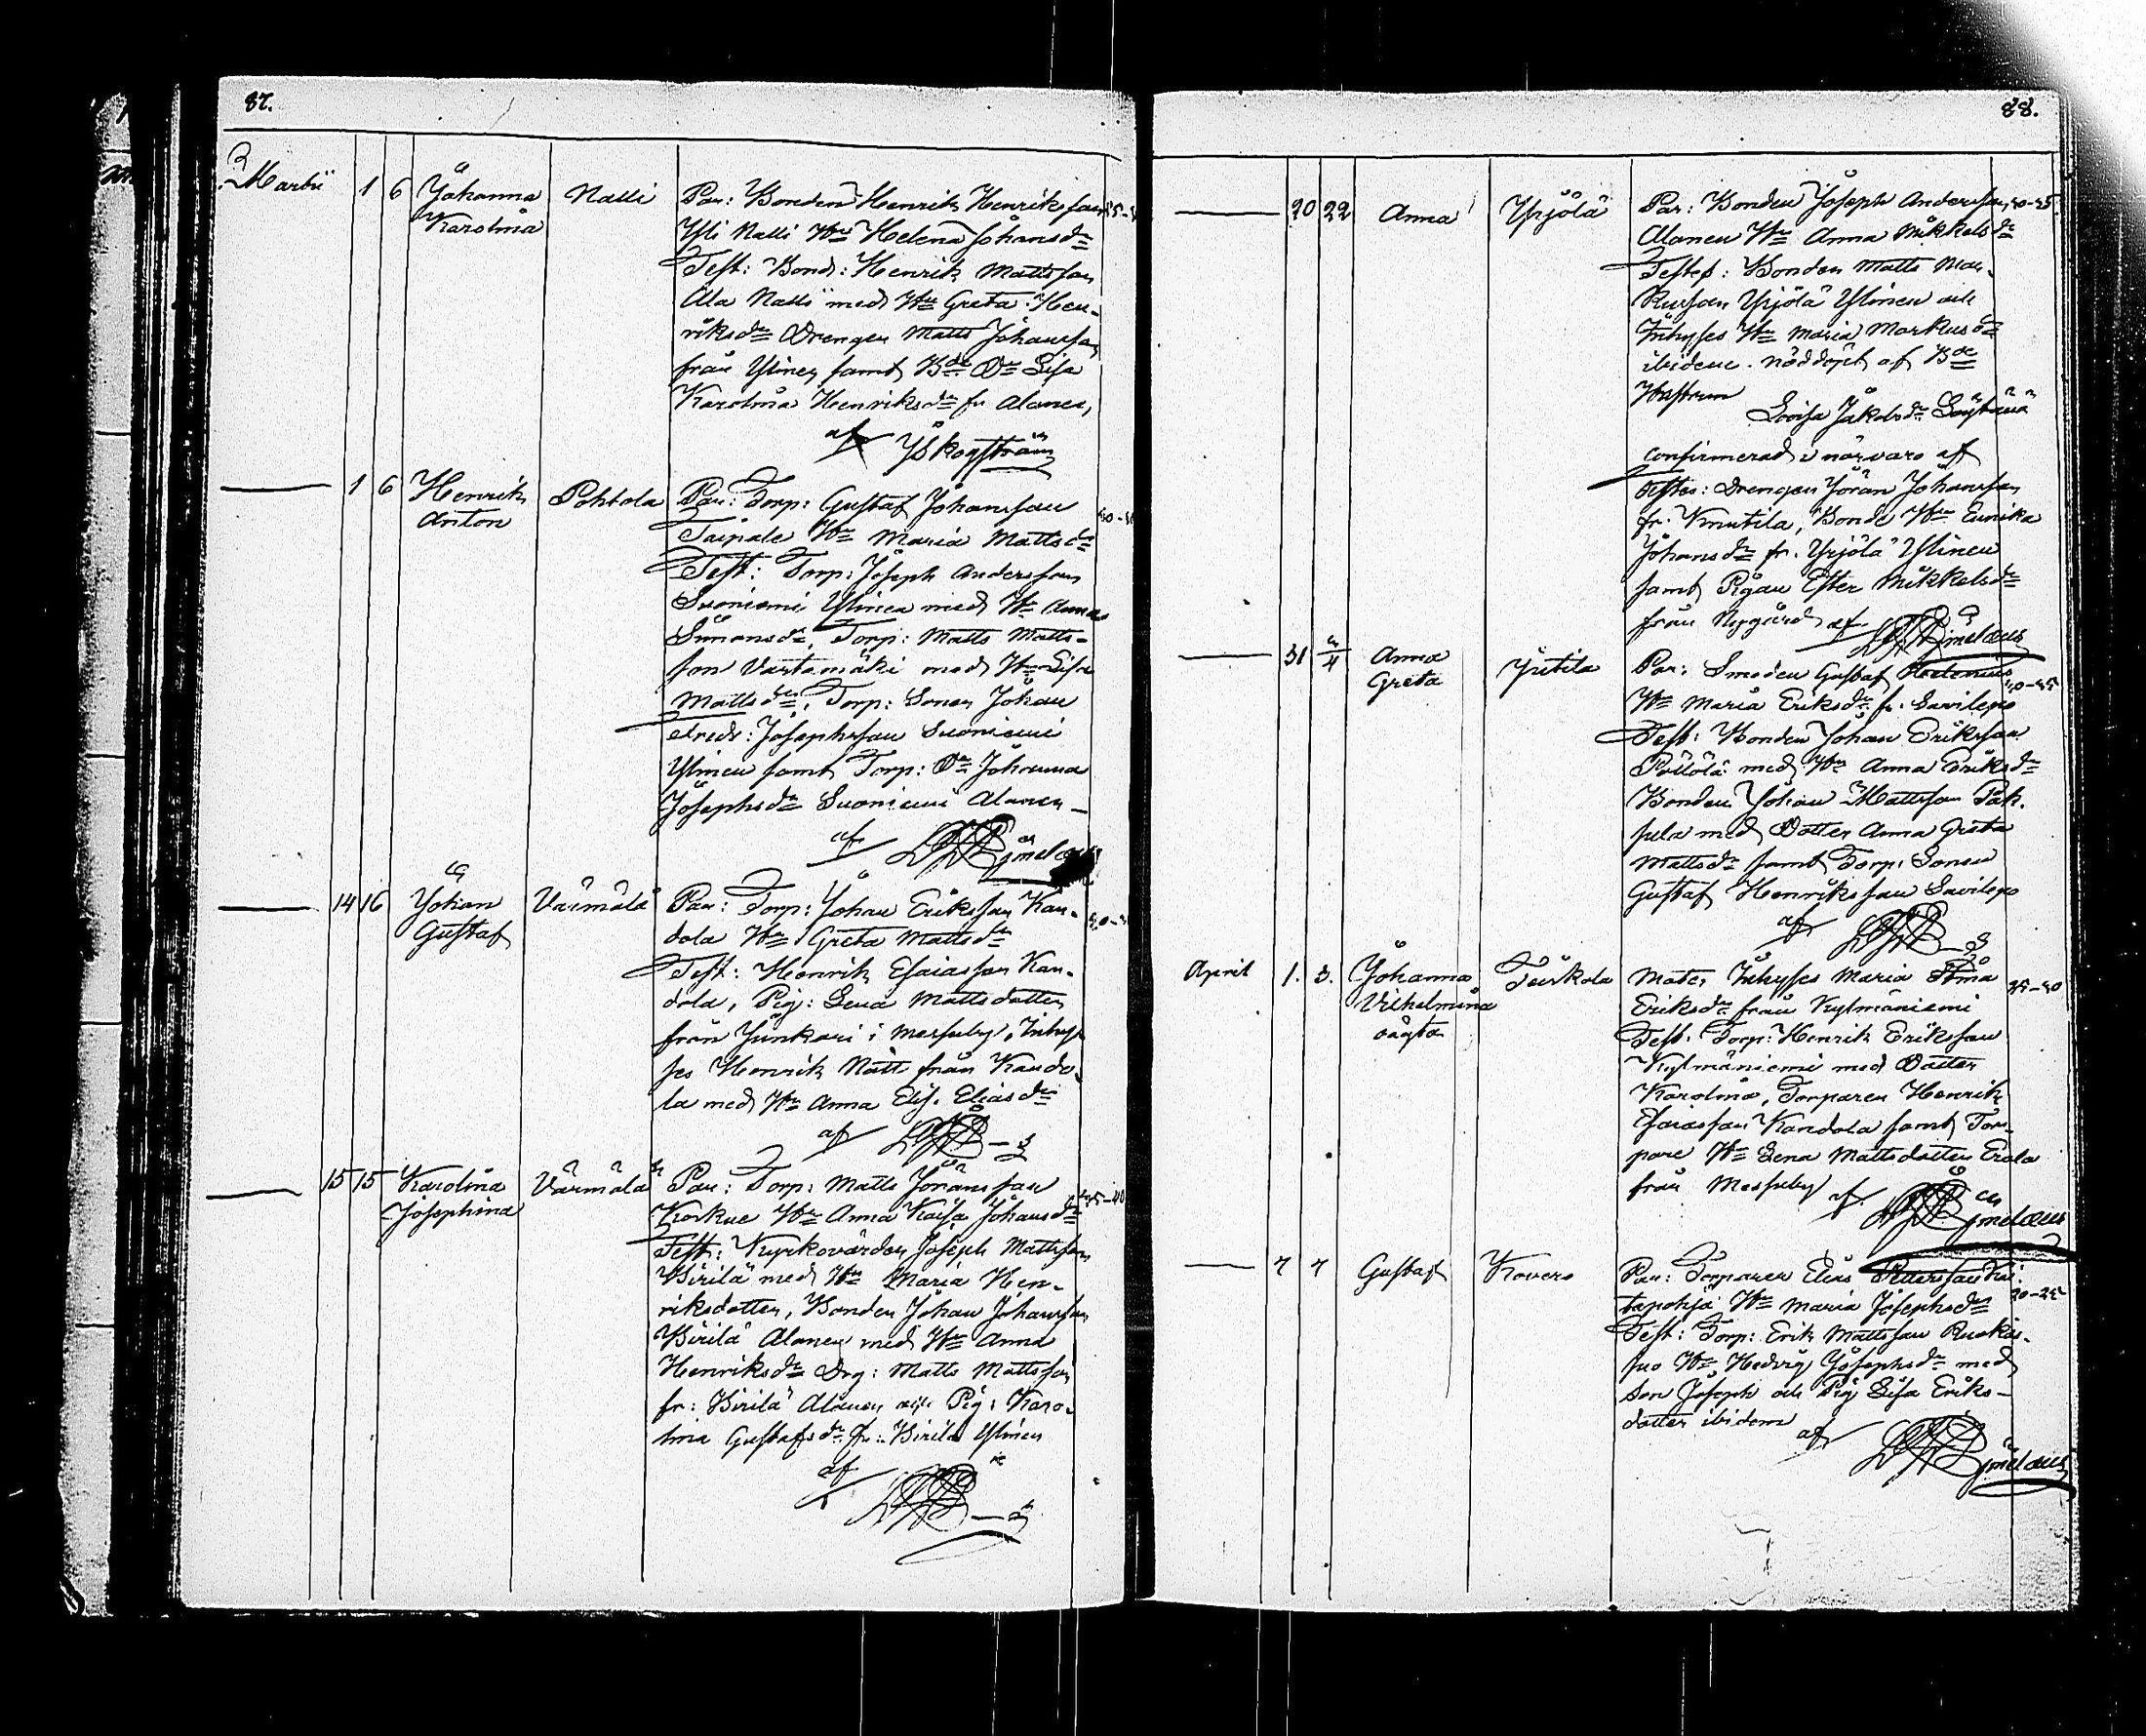 87.
Martii 1 6 Johanna Nalli Par: Bonden Henrik Henriksson
Karolina Yli Nalli Hu Helena Johansdr
Test: Bond: Henrik Mattsson
Ala Nalli med Hu Greta Hen-
riksdr Drengen Matts Johansson
från Ylinen samt Bde Dr Lisa
Karolina Henriksdr fr Alanen,
af Skogström
1 6 Henrik Pohtola Par: Torp: Gustaf Johansson
Anton Taipale Hu Maria Mattsdr
Test: Torp: Joseph Andersson
Suoniemi Ylinen med Hu Anna
Simonsdr, Torp: Matts Matts-
son Vartamäki med Hu Lisa
Mattsdr, Torp: Sonen Johan
Josephsson Suoniemi
Ylinen samt Torp: Dr Johanna
Josephsdr Suoniemi Alanen
af
14 16 Johan Värmälä Par: Torp: Johan Eriksson Kan-
Gustaf dola Hu Greta Mattsdr
Test: Henrik Esaiasson Kan-
dola, Pig: Lena Mattsdotter
från Junkari i Messuby, Inhys-
ses Henrik Matts från Kando-
la med Hu Anna Elis. Eliasdr
af
15 15 Karolina Värmälä Par: Torp: Matts Jöransson 35-40
Josephina Korkue Hu Anna Kaisa Johansdr
Test: Kyrkovärden Joseph Mattsson
Birilä med Hu Maria Hen-
riksdotter, Bonden Johan Johansson
Birilä Alanen med Hu Anna
Henriksdr Drg: Matts Mattsson
fr: Birilä Alanen och Pig: Karo-
lina Gustafsdr fr: Birilä Ylinen
af
88.
20 22 Anna Yrjölä Par: Bonden Joseph Andersson
Alanen Hu Anna Mikkelsdr
Testes: Bonden Matts Mar-
kusson Yrjölä Ylinen och
Inhyses Hu Maria Markusdr
ibidem. nöddöpt af Bde
Hustrun
Lovisa Jakobsdr
confirmerad i närvaro af
Testes: Drengen Jöran Johansson
fr. Knutila, Bonde Hu Eurika
Johansdr fr. Yrjölä Ylinen
samt Pigan Ester Mikkelsdr
från Nygård af
31 2/4 Anna Yritila Par: Smeden Gustaf
Greta Hu Maria Eriksdr fr. Savilepo
Test: Bonden Johan Eriksson
Pöllölä med Hu Anna Eriksdr
Bonden Johan Mattsson Pak-
sula med Dotter Anna Greta
Mattsdr samt Torp: Sonen
Gustaf Henriksson Savilepo
af
April 1. 3. Johanna Teiskola Mater Inhyses Maria Stina 35-40
Vilhelmina Eriksdr från Kylmäniemi
oägta Test. Torp: Henrik Eriksson
Kylmäniemi med Dotter
Karolina, Torparen Henrik
Esaiasson Kandola samt Tor-
pare Hu Lena Mattsdotter Erola
från Messuby af
7 7 Gustaf Kovero Par: Torparen Elias Petersson Kui-
tapohja Hu Maria Josephsdr 20-25
Test: Torp: Erik Mattsson Ruokis-
suo Hu Hedvig Josephsdr med
Son Joseph och Pig Lisa Eriks-
dotter ibidem
af